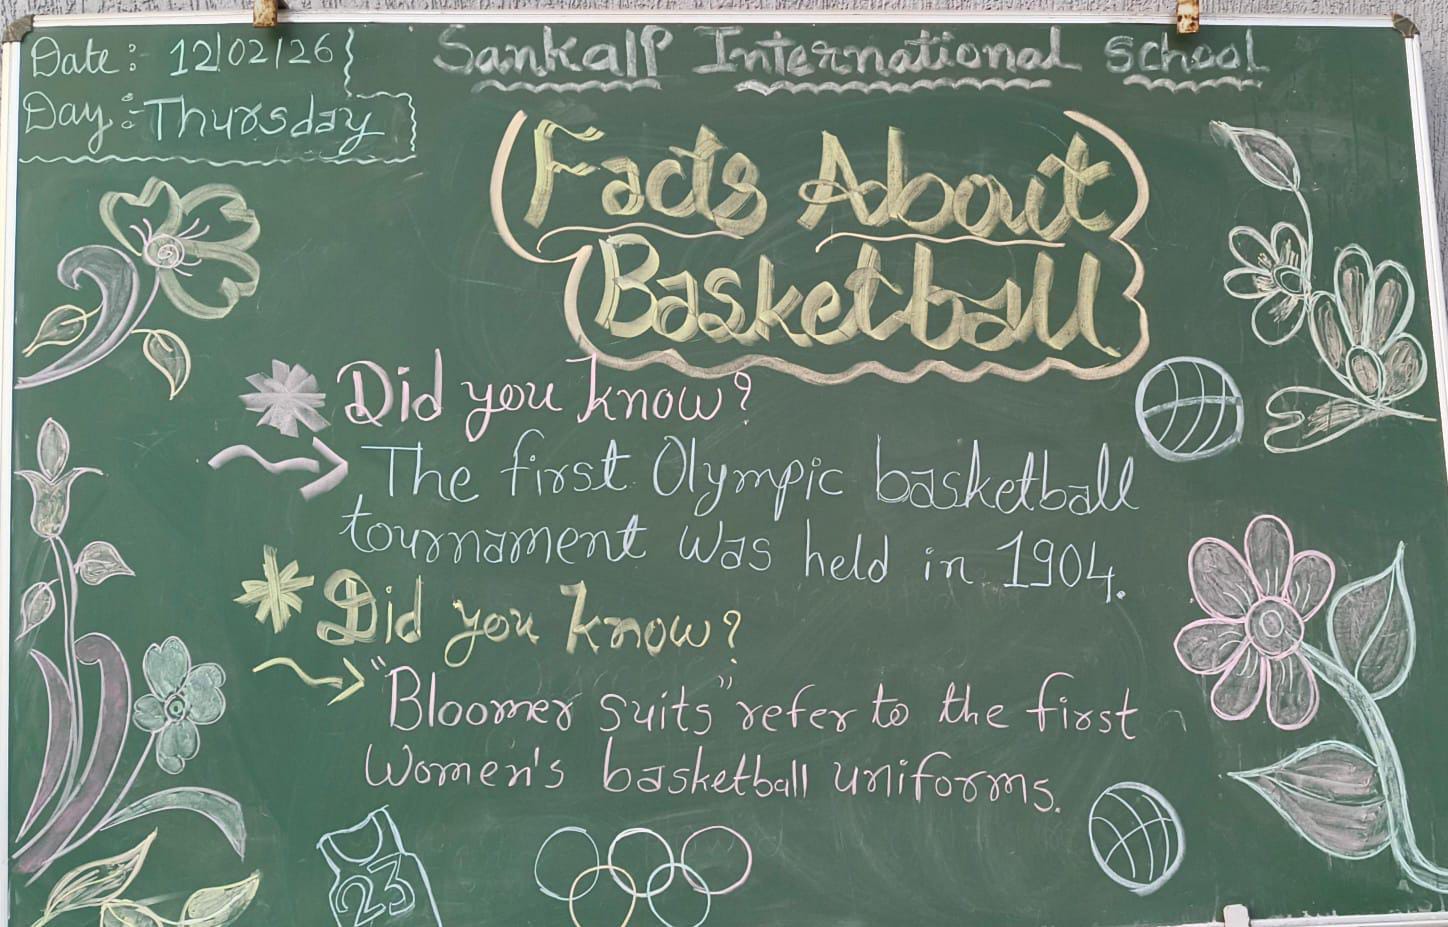 Date:- 12/02/26
Day:- Thursday
Sankalp International School
Facts About
Basketball
Did you know?
The first Olympic basketball
tournament was held in 1904.
Did you know?
"Bloomer suits" refer to the first
Women's basketball uniforms.
23